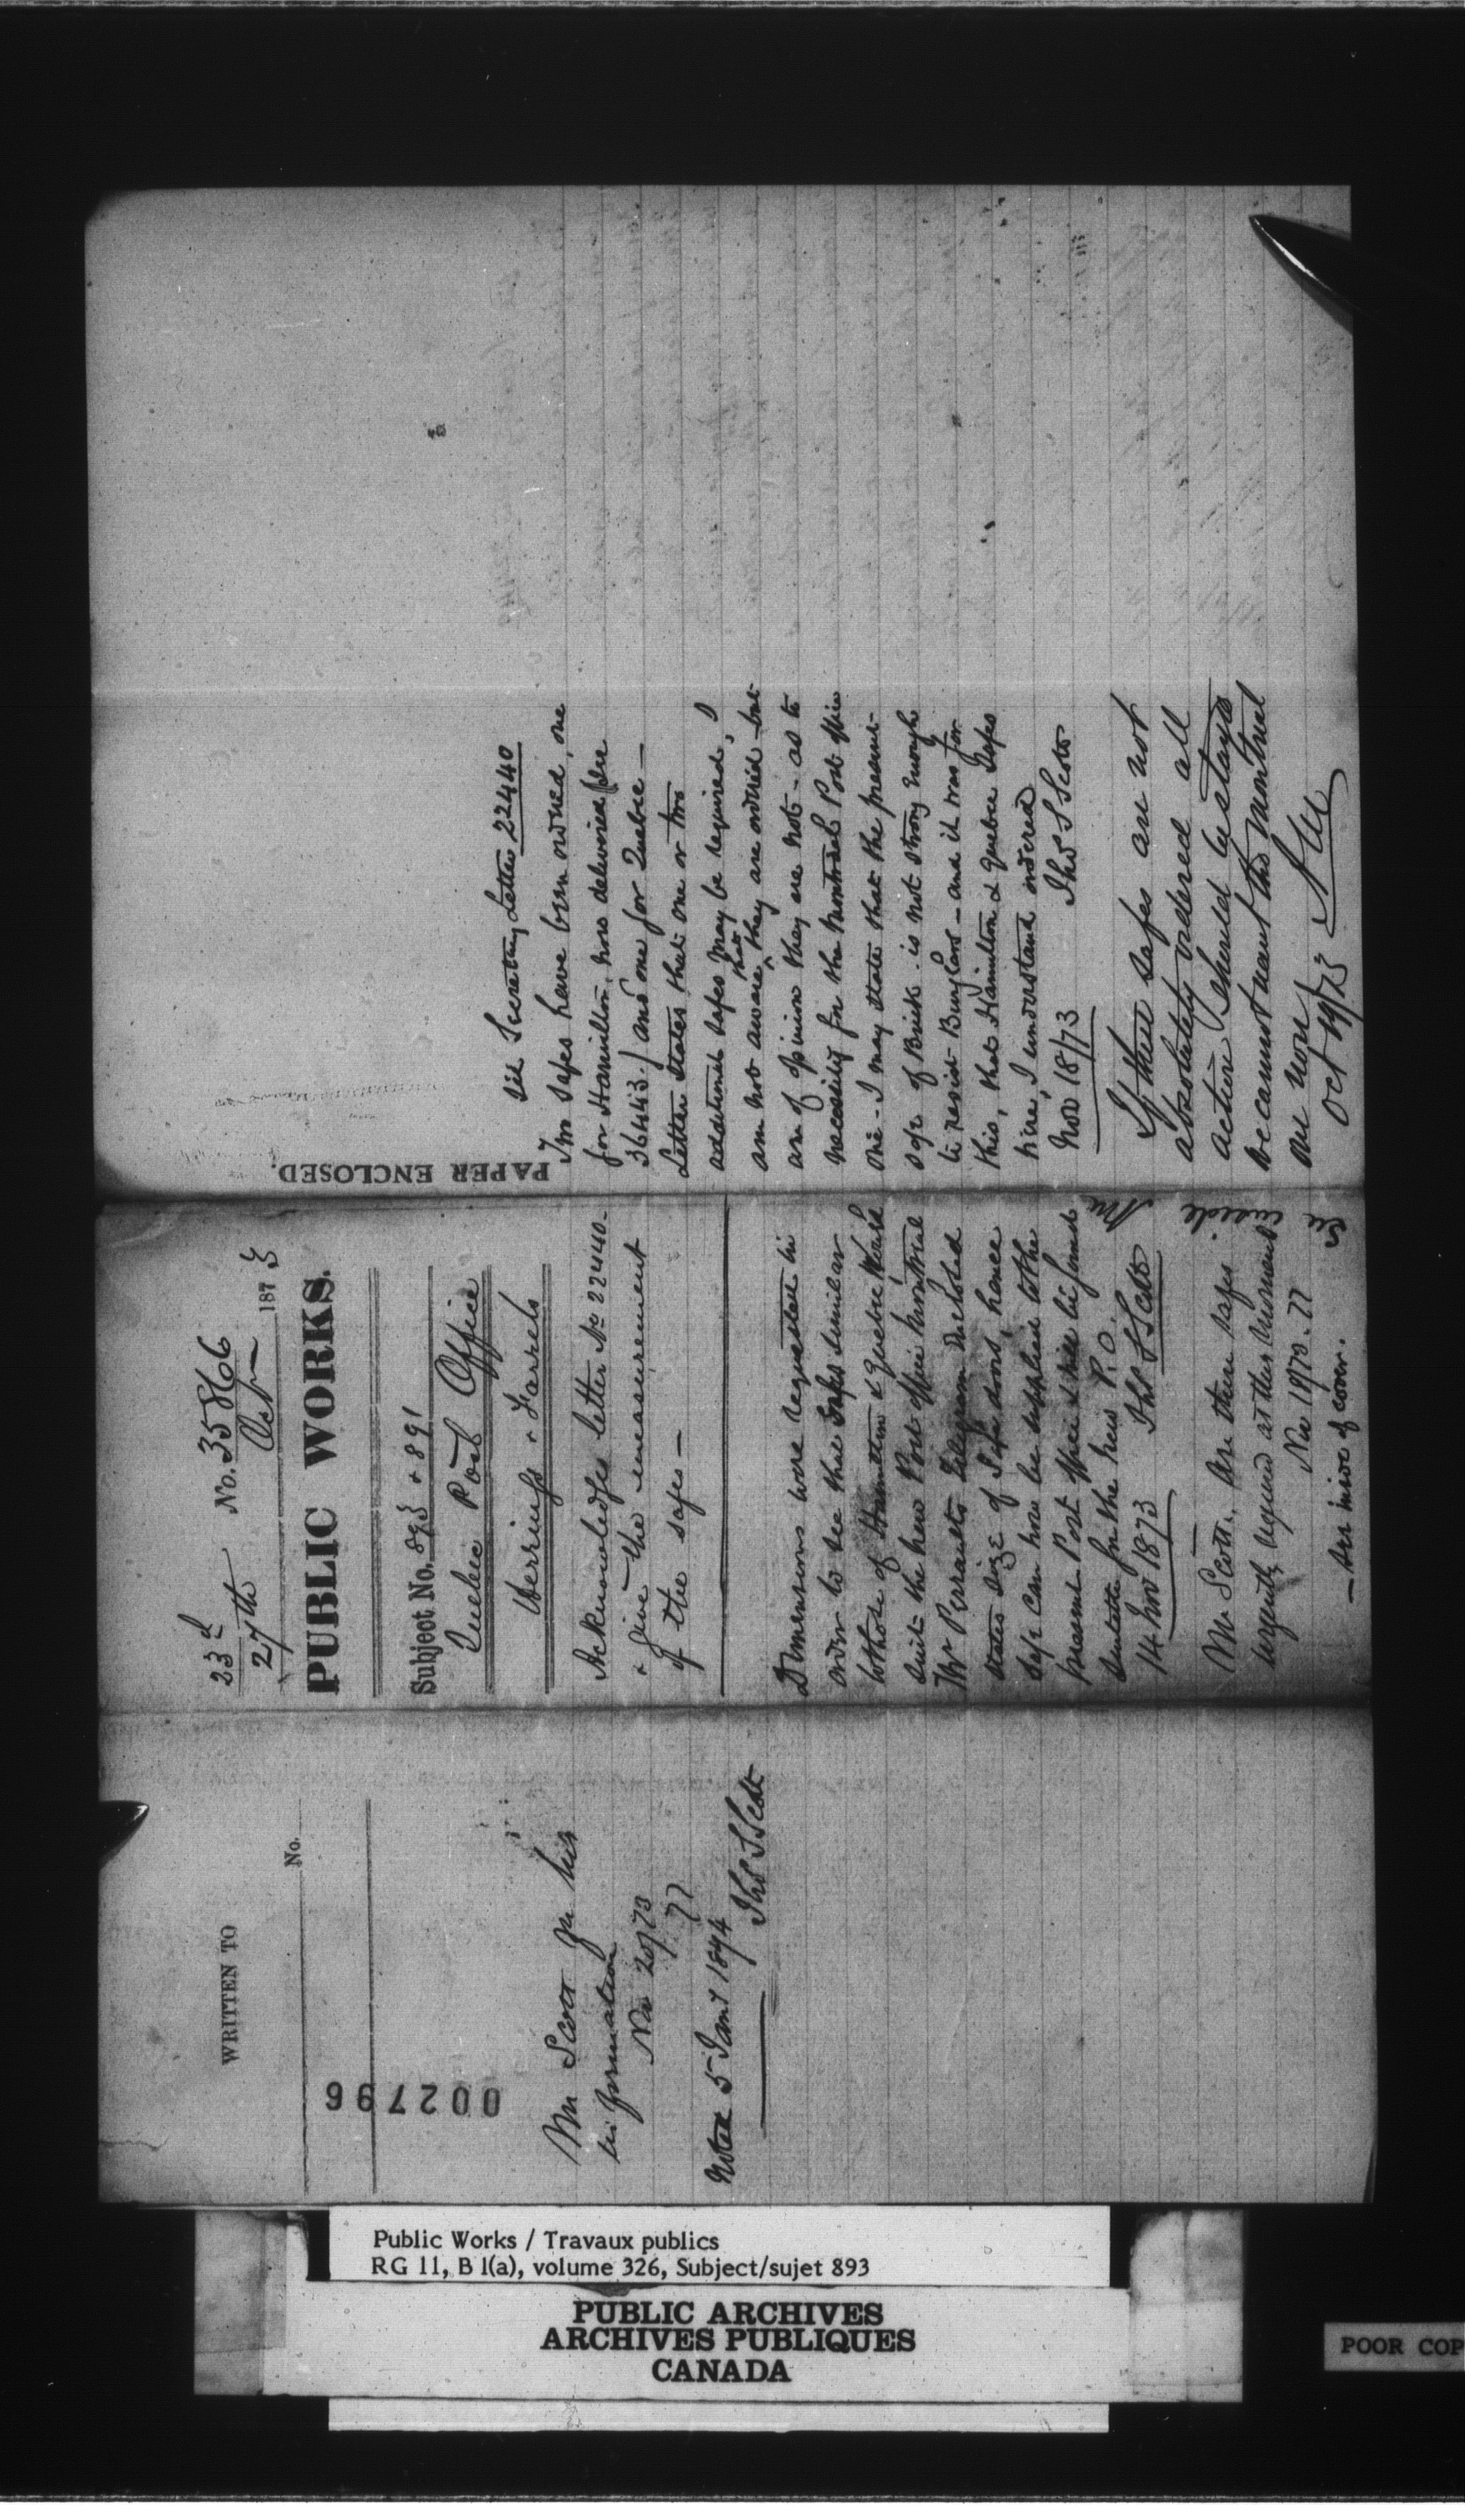 WRITTEN TO
No.
002796
Mr Scott for his
information
Nov 20/73
Noted 5 Jany 1874
Thos S Scott
23d
27th No. 35866
Oct 1873
PUBLIC WORKS.
Subject No. 893 & 891
Quebec Post Office
Herrings & Farrels
Acknowledges letter No 22440-
& give the measurement
of the safes —
Dimensions were requested in
order to see that Safes similar
to those of Hamilton & Quebec would
suit the new Post office Montreal
Mr Perraults Telegram enclosed
states size of Safe doors, hence
Safe can now be supplied to the
present Post office & will be found
suitable for the new P.O.
14 Nov 1873 Thos S Scott
Mr Scott. Are these safes
urgently required at this moment
Nov 18/73.
See inside
— See inside of cover.
PAPER ENCLOSED.
See Secretary Letter 22440
Two Safes have been ordered, one
for Hamilton, now delivered (see
36443.) and one for Quebec —
Letter States that one or two
additional safes may be required, I
am not aware that they are ordered but
am of opinion they are not - as to
necessity for the Montreal Post office
one - I may state that the present
safe of Brick is not strong enough
to resist Burglars - and it was for
this, that Hamilton & Quebec Safes
here, I understand ordered
Nov 18/73 Thos S Scott
If these safes are not
absolutely ordered all
action should be stayed
we cannot want this Montreal
one now
Oct 19/73
Public Works / Travaux publics
RG 11, B 1(a), volume 326, Subject/sujet 893
PUBLIC ARCHIVES
ARCHIVES PUBLIQUES
CANADA
POOR COP